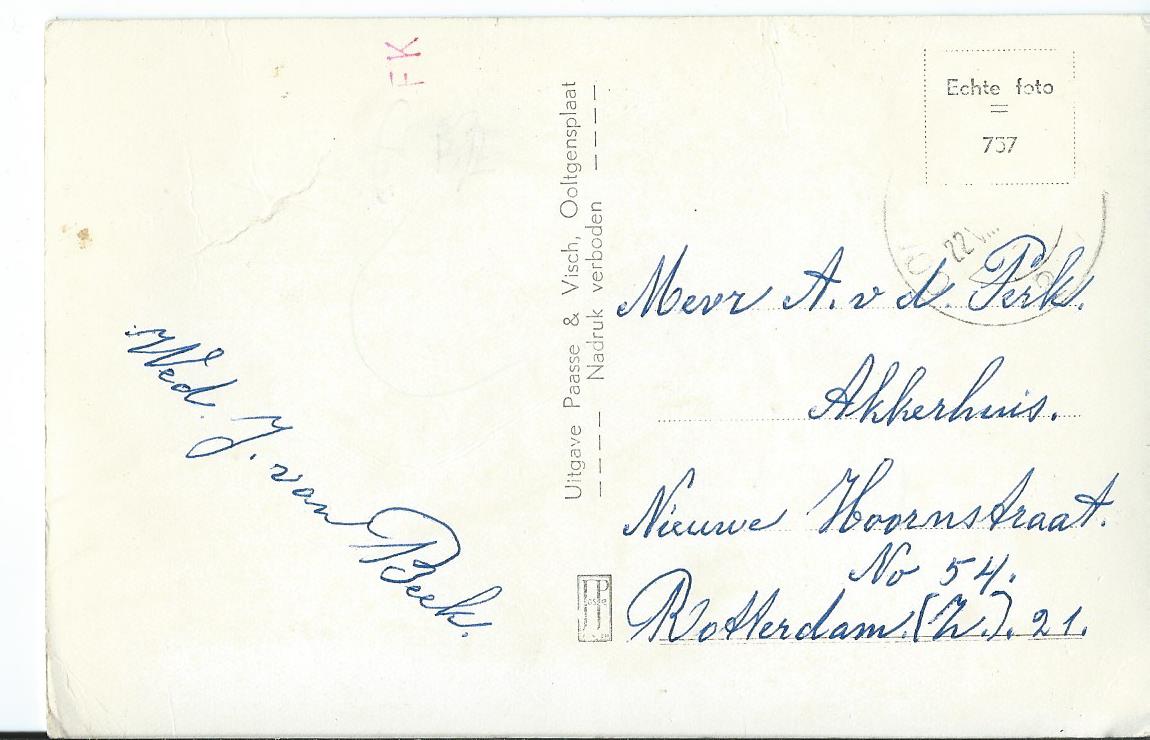 FK
Wed. J. van Beek.
Uitgave Paasse & Visch, Ooltgensplaat
Nadruk verboden
Echte foto
737
22
Mevr A. v d. Perk.
Akkerhuis.
Nieuwe Hoornstraat.
No 54.
Rotterdam. (Z.). 21.